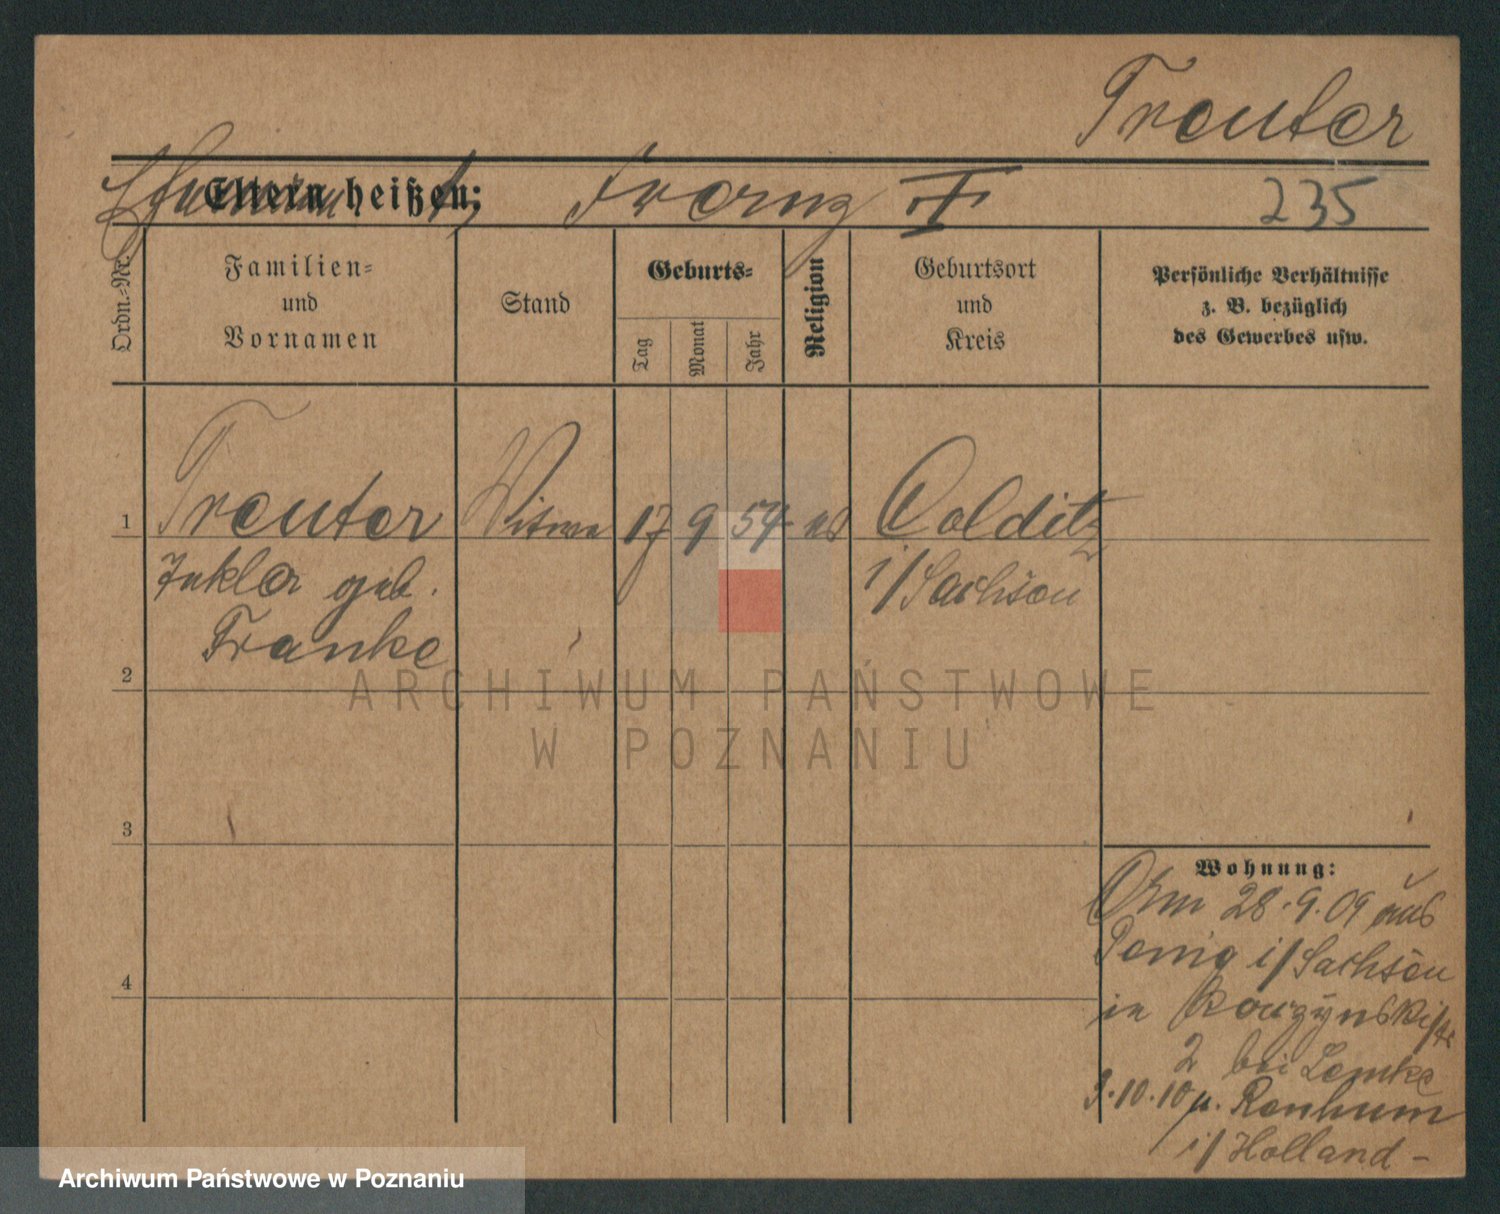 Treuter
Eltern heißen: Franz II 235
Ordn.-Nr.
Familien-
und
Vornamen
Stand
Geburts-
Tag
Monat
Jahr
Religion
Geburtsort
und
Kreis
Persönliche Verhältnisse
z. B. bezüglich
des Gewerbes usw.
1 Treuter Witwe 17 9 54 Colditz
geb. i/Sachsen
Franke
2
3
4
Wohnung:
28.9.09 aus
Penig i/Sachsen
in
2 bei Lemke
3.10.10 Renkum
i/Holland -
ARCHIWUM PAŃSTWOWE
W POZNANIU
Archiwum Państwowe w Poznaniu